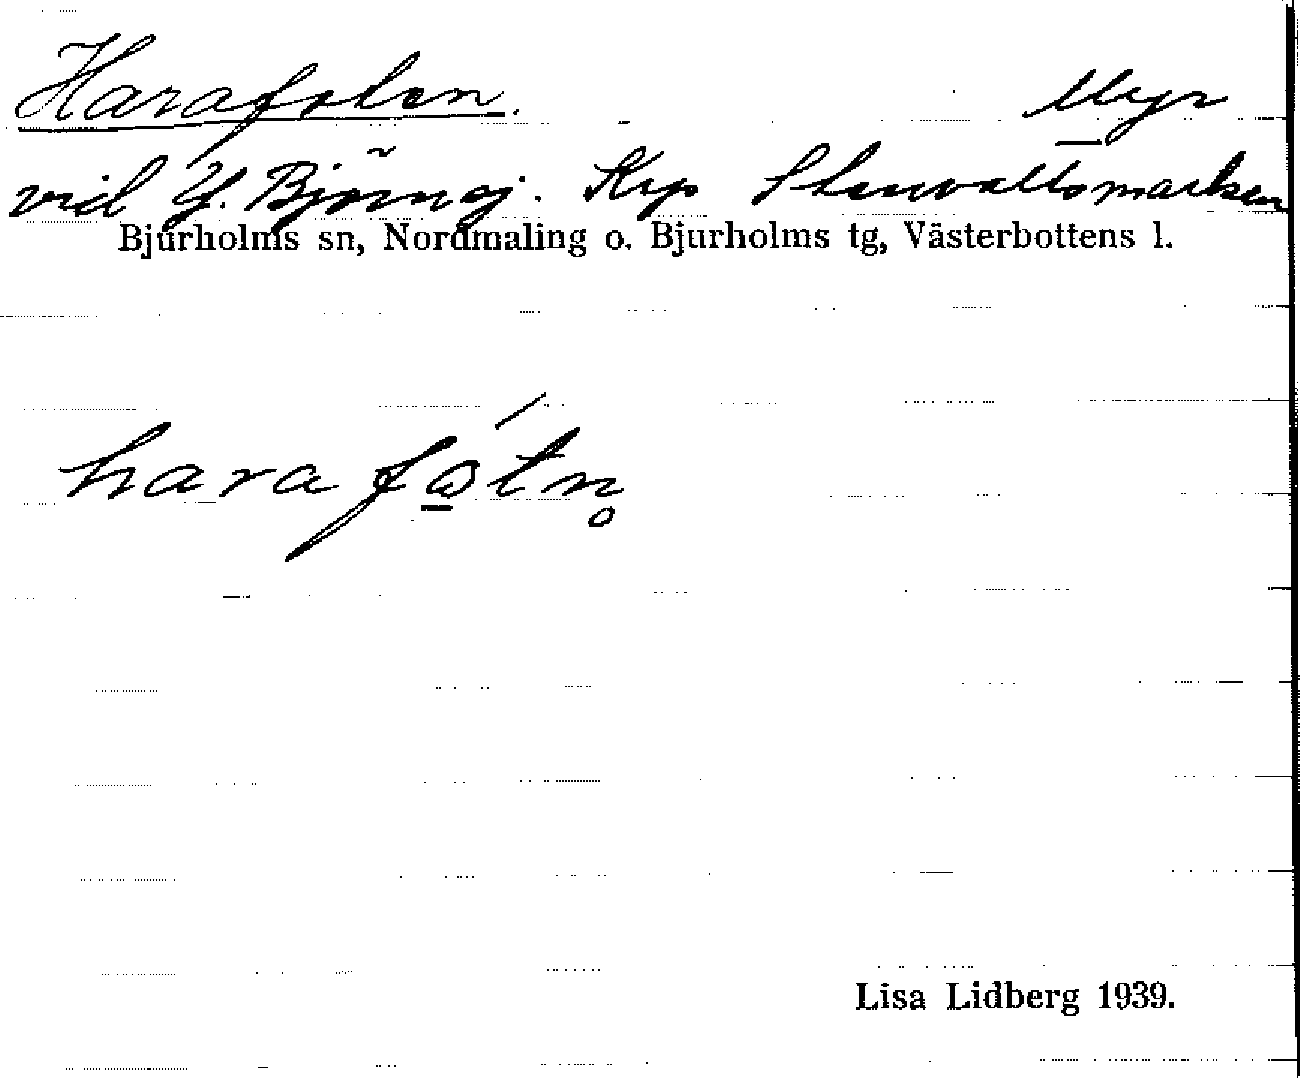 Harafoten. Myr
vid Y. Björnsj. Krp Stenvattsmarken
Bjurholms sn, Nordmaling o. Bjurholms tg, Västerbottens l.
harafo̱tn̥
Lisa Lidberg 1939.